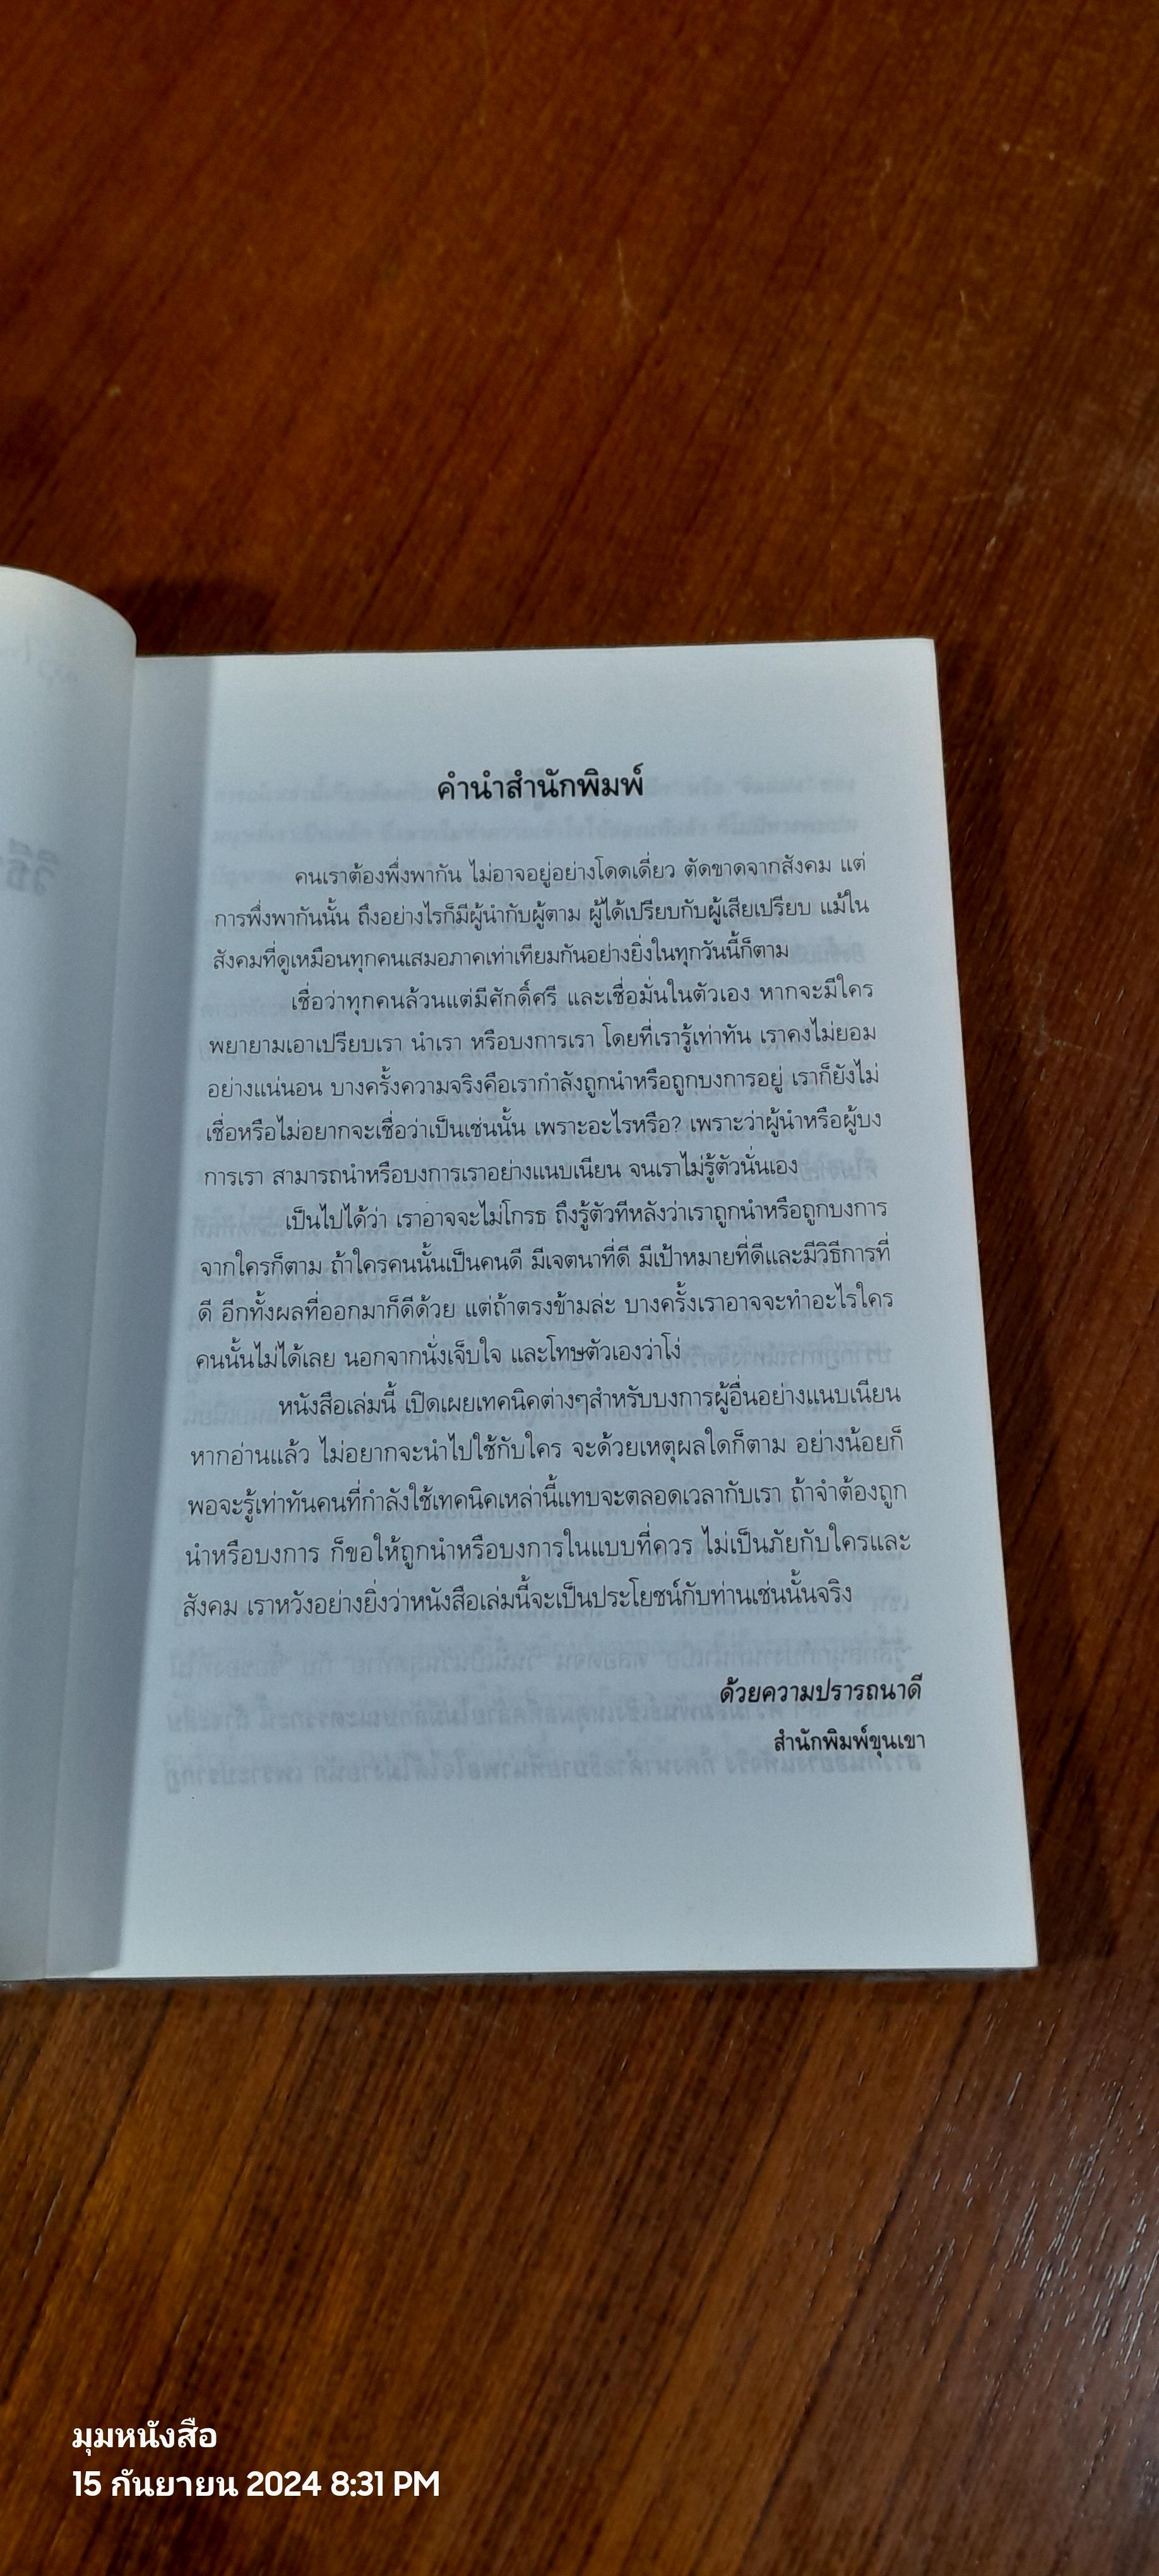 คำนำสำนักพิมพ์
คนเราต้องพึ่งพากัน ไม่อาจอยู่อย่างโดดเดี่ยว ตัดขาดจากสังคม แต่
การพึ่งพากันนั้น ถึงอย่างไรก็มีผู้นำกับผู้ตาม ผู้ได้เปรียบกับผู้เสียเปรียบ แม้ใน
สังคมที่ดูเหมือนทุกคนเสมอภาคเท่าเทียมกันอย่างยิ่งในทุกวันนี้ก็ตาม
เชื่อว่าทุกคนล้วนแต่มีศักดิ์ศรี และเชื่อมั่นในตัวเอง หากจะมีใคร
พยายามเอาเปรียบเรา นำเรา หรือบงการเรา โดยที่เรารู้เท่าทัน เราคงไม่ยอม
อย่างแน่นอน บางครั้งความจริงคือเรากำลังถูกนำหรือถูกบงการอยู่ เราก็ยังไม่
เชื่อหรือไม่อยากจะเชื่อว่าเป็นเช่นนั้น เพราะอะไรหรือ? เพราะว่าผู้นำหรือผู้บง
การเรา สามารถนำหรือบงการเราอย่างแนบเนียน จนเราไม่รู้ตัวนั่นเอง
เป็นไปได้ว่า เราอาจจะไม่โกรธ ถึงรู้ตัวทีหลังว่าเราถูกนำหรือถูกบงการ
จากใครก็ตาม ถ้าใครคนนั้นเป็นคนดี มีเจตนาที่ดี มีเป้าหมายที่ดีและมีวิธีการที่
ดี อีกทั้งผลที่ออกมาก็ดีด้วย แต่ถ้าตรงข้ามล่ะ บางครั้งเราอาจจะทำอะไรใคร
คนนั้นไม่ได้เลย นอกจากนั่งเจ็บใจ และโทษตัวเองว่าโง่
หนังสือเล่มนี้ เปิดเผยเทคนิคต่างๆสำหรับบงการผู้อื่นอย่างแนบเนียน
หากอ่านแล้ว ไม่อยากจะนำไปใช้กับใคร จะด้วยเหตุผลใดก็ตาม อย่างน้อยก็
พอจะรู้เท่าทันคนที่กำลังใช้เทคนิคเหล่านี้แทบจะตลอดเวลากับเรา ถ้าจำต้องถูก
นำหรือบงการ ก็ขอให้ถูกนำหรือบงการในแบบที่ควร ไม่เป็นภัยกับใครและ
สังคม เราหวังอย่างยิ่งว่าหนังสือเล่มนี้จะเป็นประโยชน์กับท่านเช่นนั้นจริง
ด้วยความปรารถนาดี
สำนักพิมพ์ขุนเขา
มุมหนังสือ
15 กันยายน 2024 8:31 PM